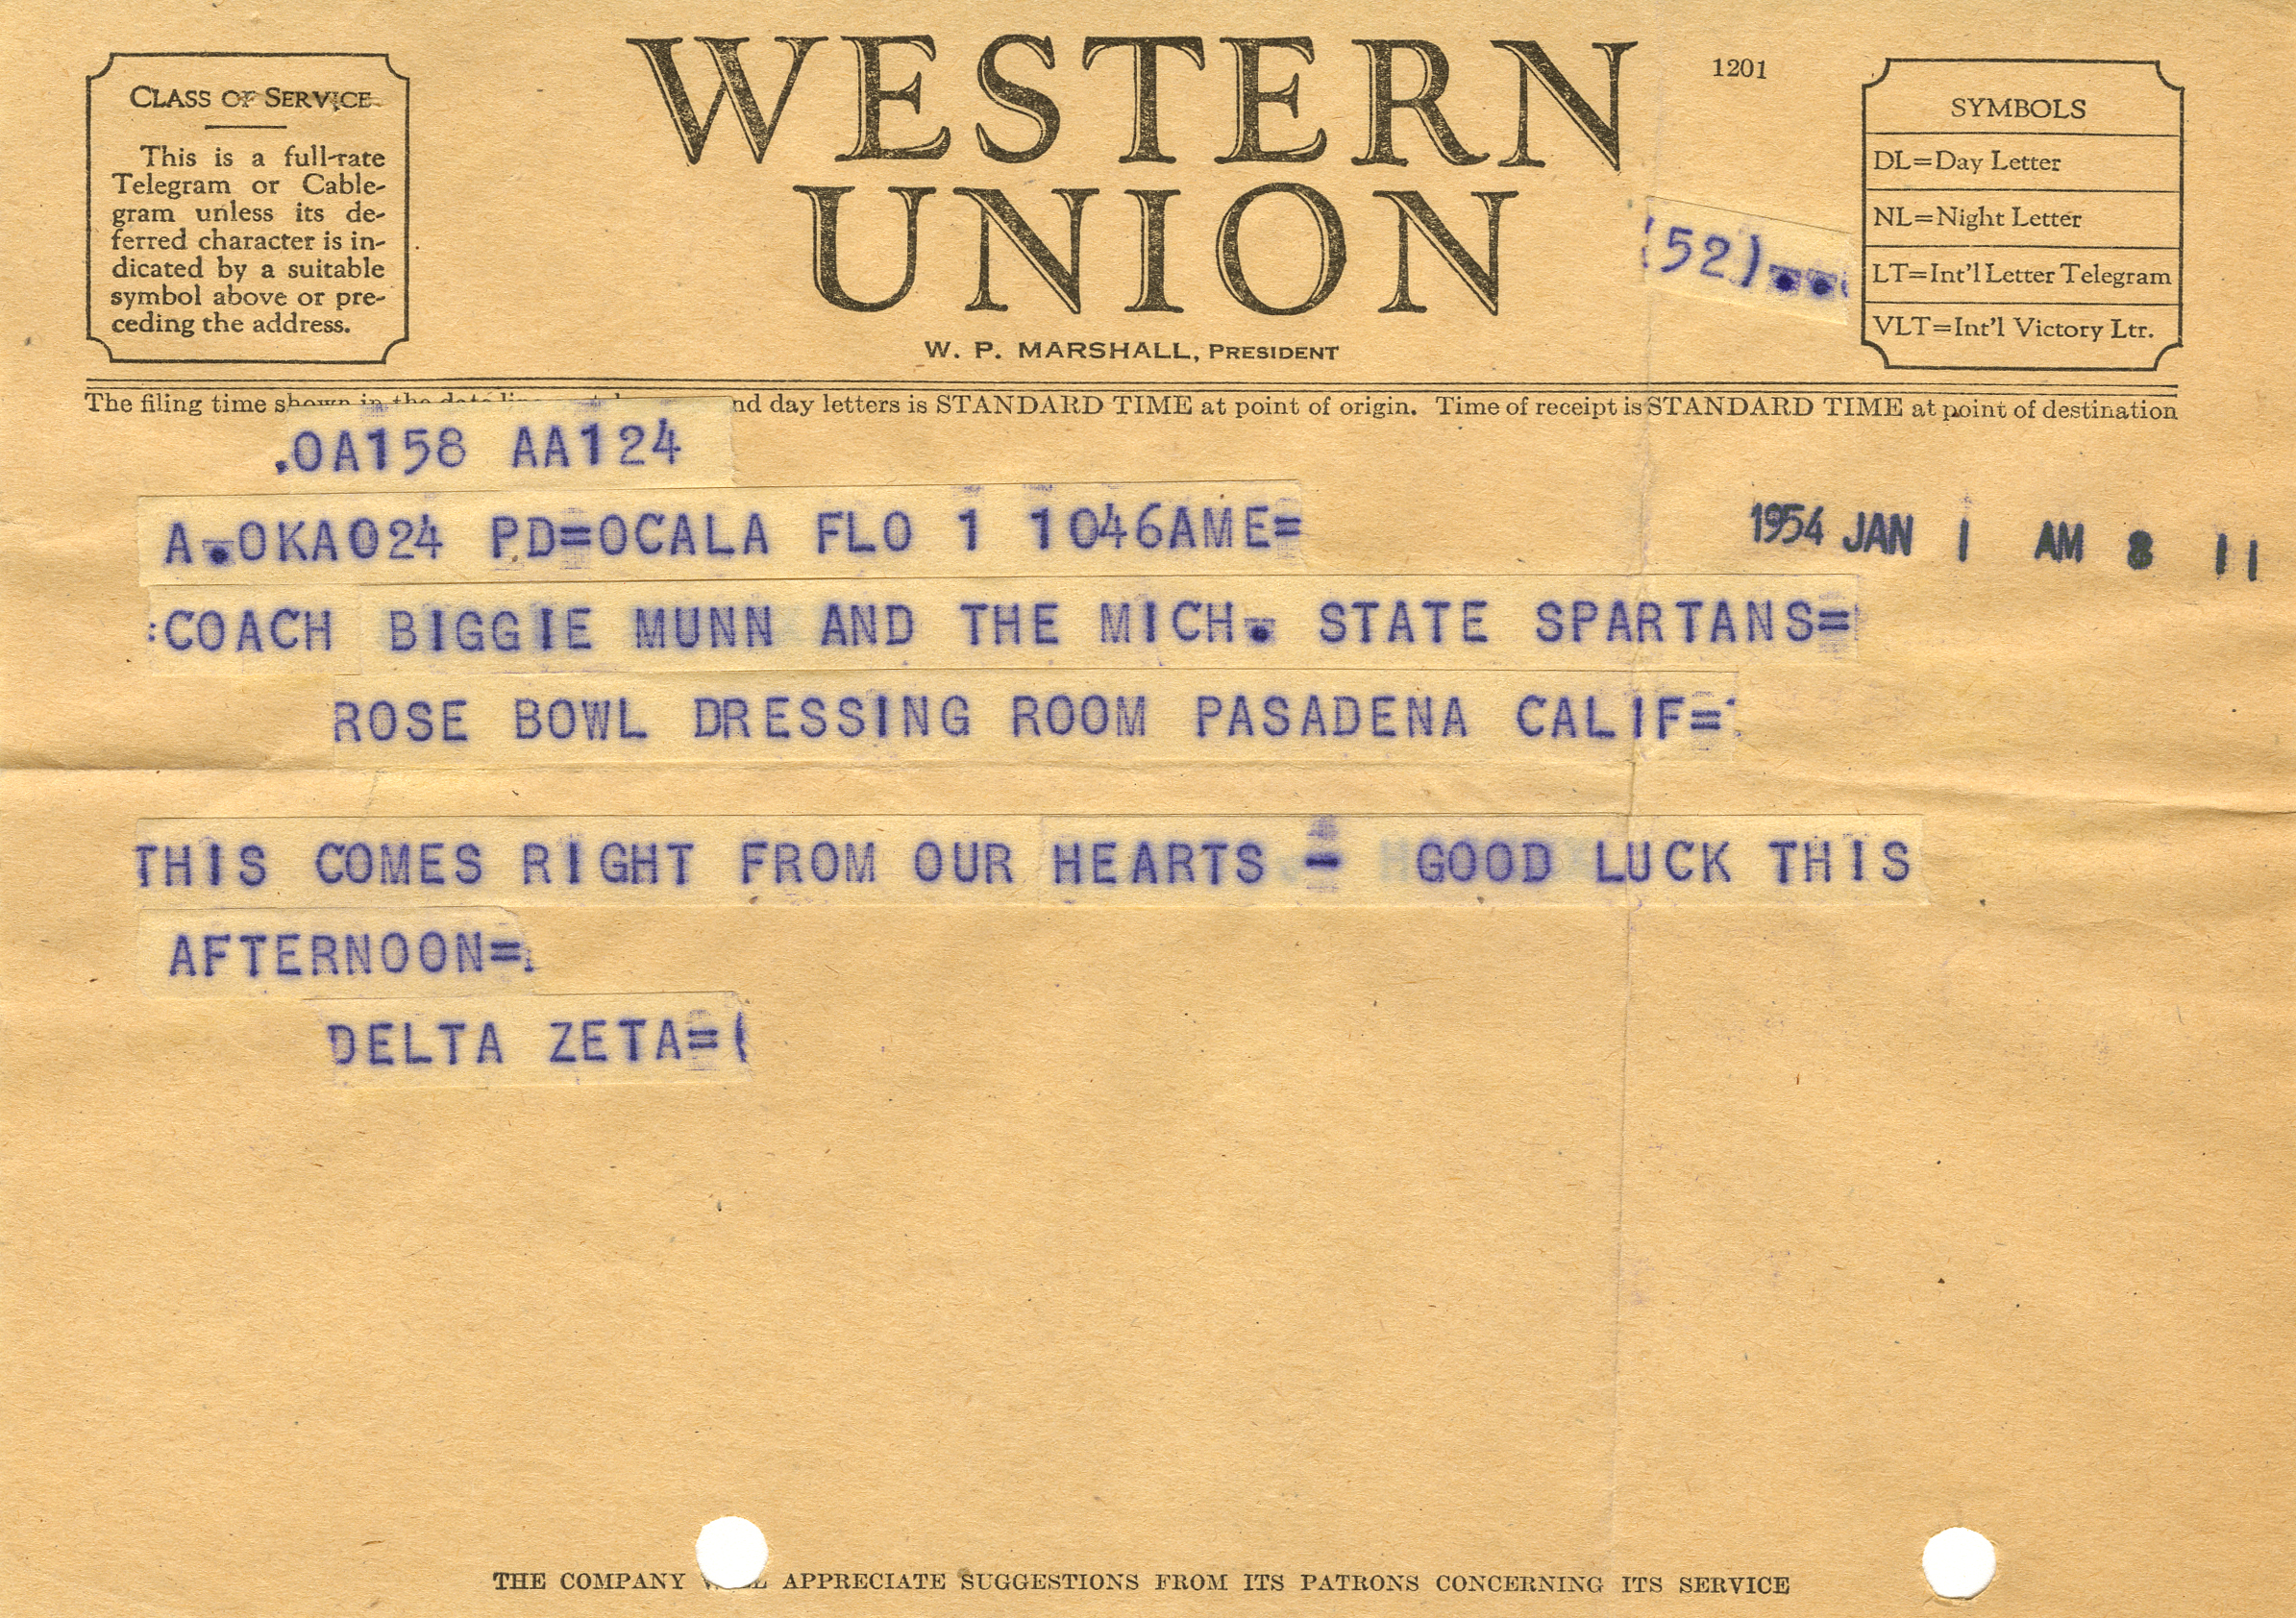 WESTERN
UNION
1201
CLASS OF SERVICE
This is a full-rate
Telegram or Cable-
gram unless its de-
ferred character is in-
dicated by a suitable
symbol above or pre-
ceding the address.
W. P. MARSHALL, PRESIDENT
(52)
SYMBOLS
DL=Day Letter
NL=Night Letter
LT=Int'l Letter Telegram
VLT=Int'l Victory Ltr.
The filing time shown in the date line nd day letters is STANDARD TIME at point of origin. Time of receipt is STANDARD TIME at point of destination
.OA158 AA124
A.OKA024 PD=OCALA FLO 1 1046AME=
1954 JAN 1 AM 8 11
:COACH BIGGIE MUNN AND THE MICH. STATE SPARTANS=
ROSE BOWL DRESSING ROOM PASADENA CALIF=
THIS COMES RIGHT FROM OUR HEARTS - GOOD LUCK THIS
AFTERNOON=
DELTA ZETA=(
THE COMPANY APPRECIATE SUGGESTIONS FROM ITS PATRONS CONCERNING ITS SERVICE